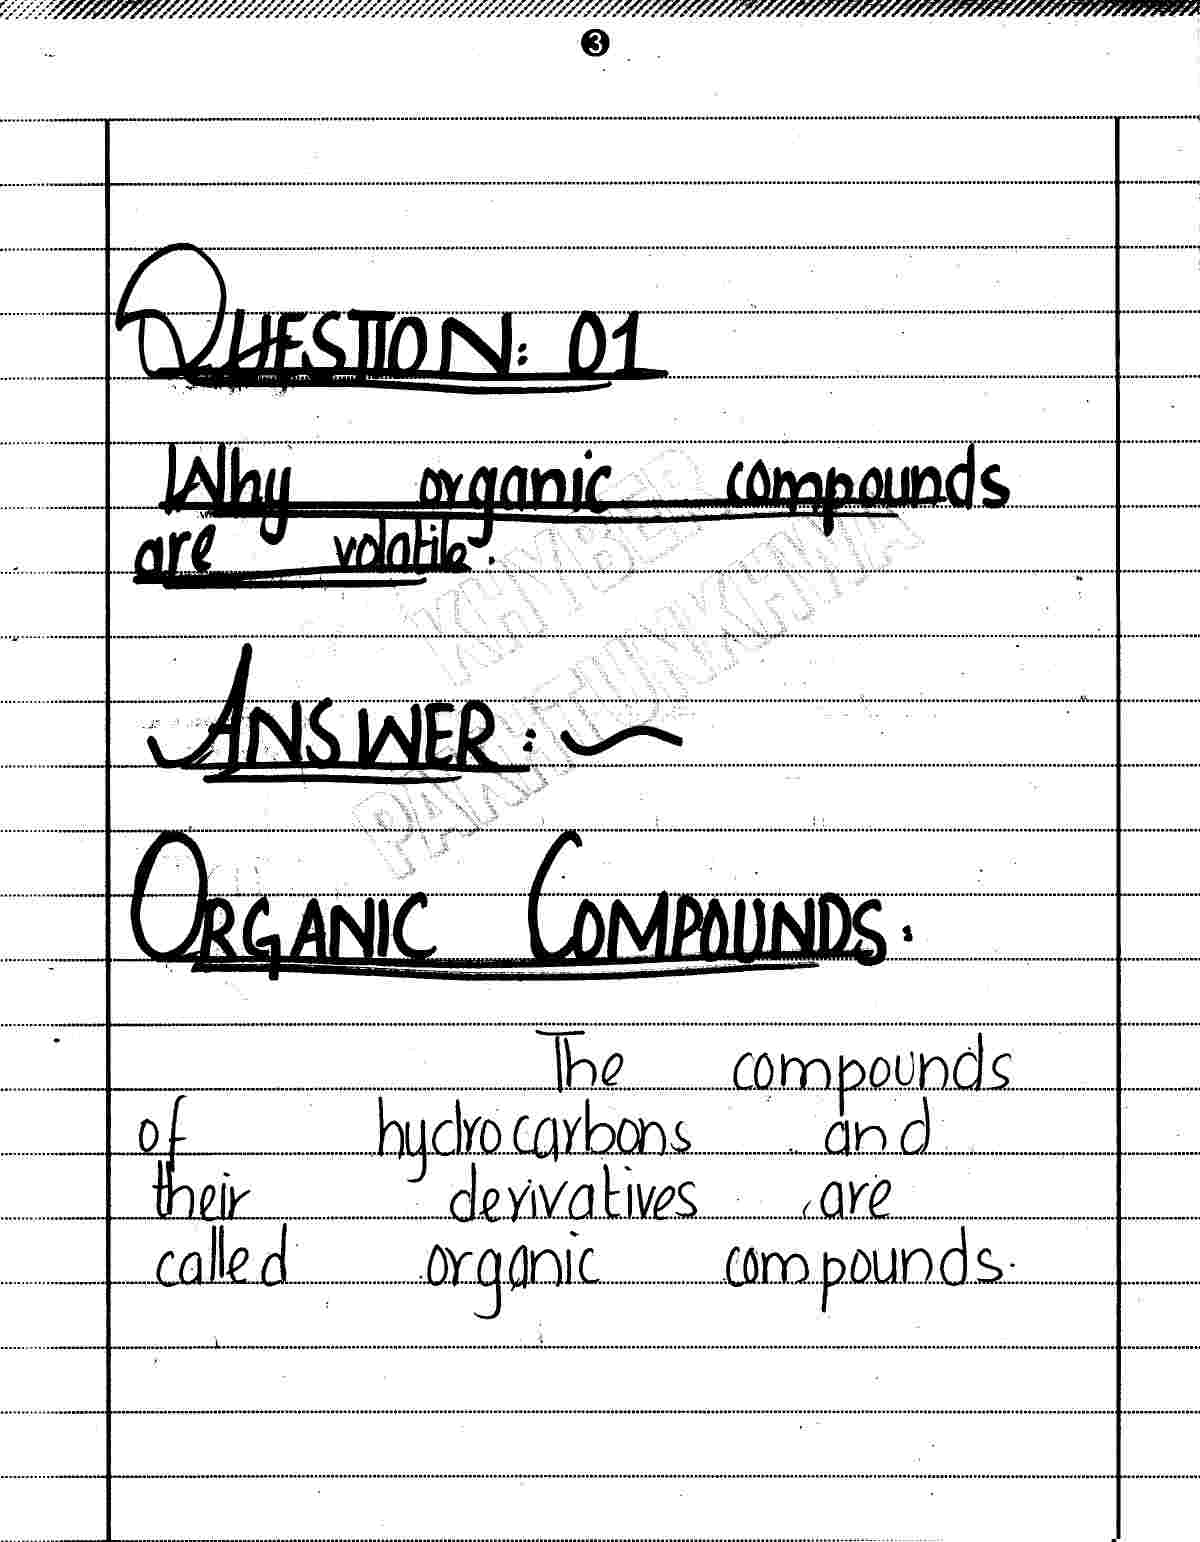 3
QUESTION: 01
Why organic compounds
are volatile.
ANSWER:
ORGANIC COMPOUNDS.
The compounds
of hydrocarbons and
their derivatives are
called organic compounds.
KHYBER
PAKHTUNKHWA